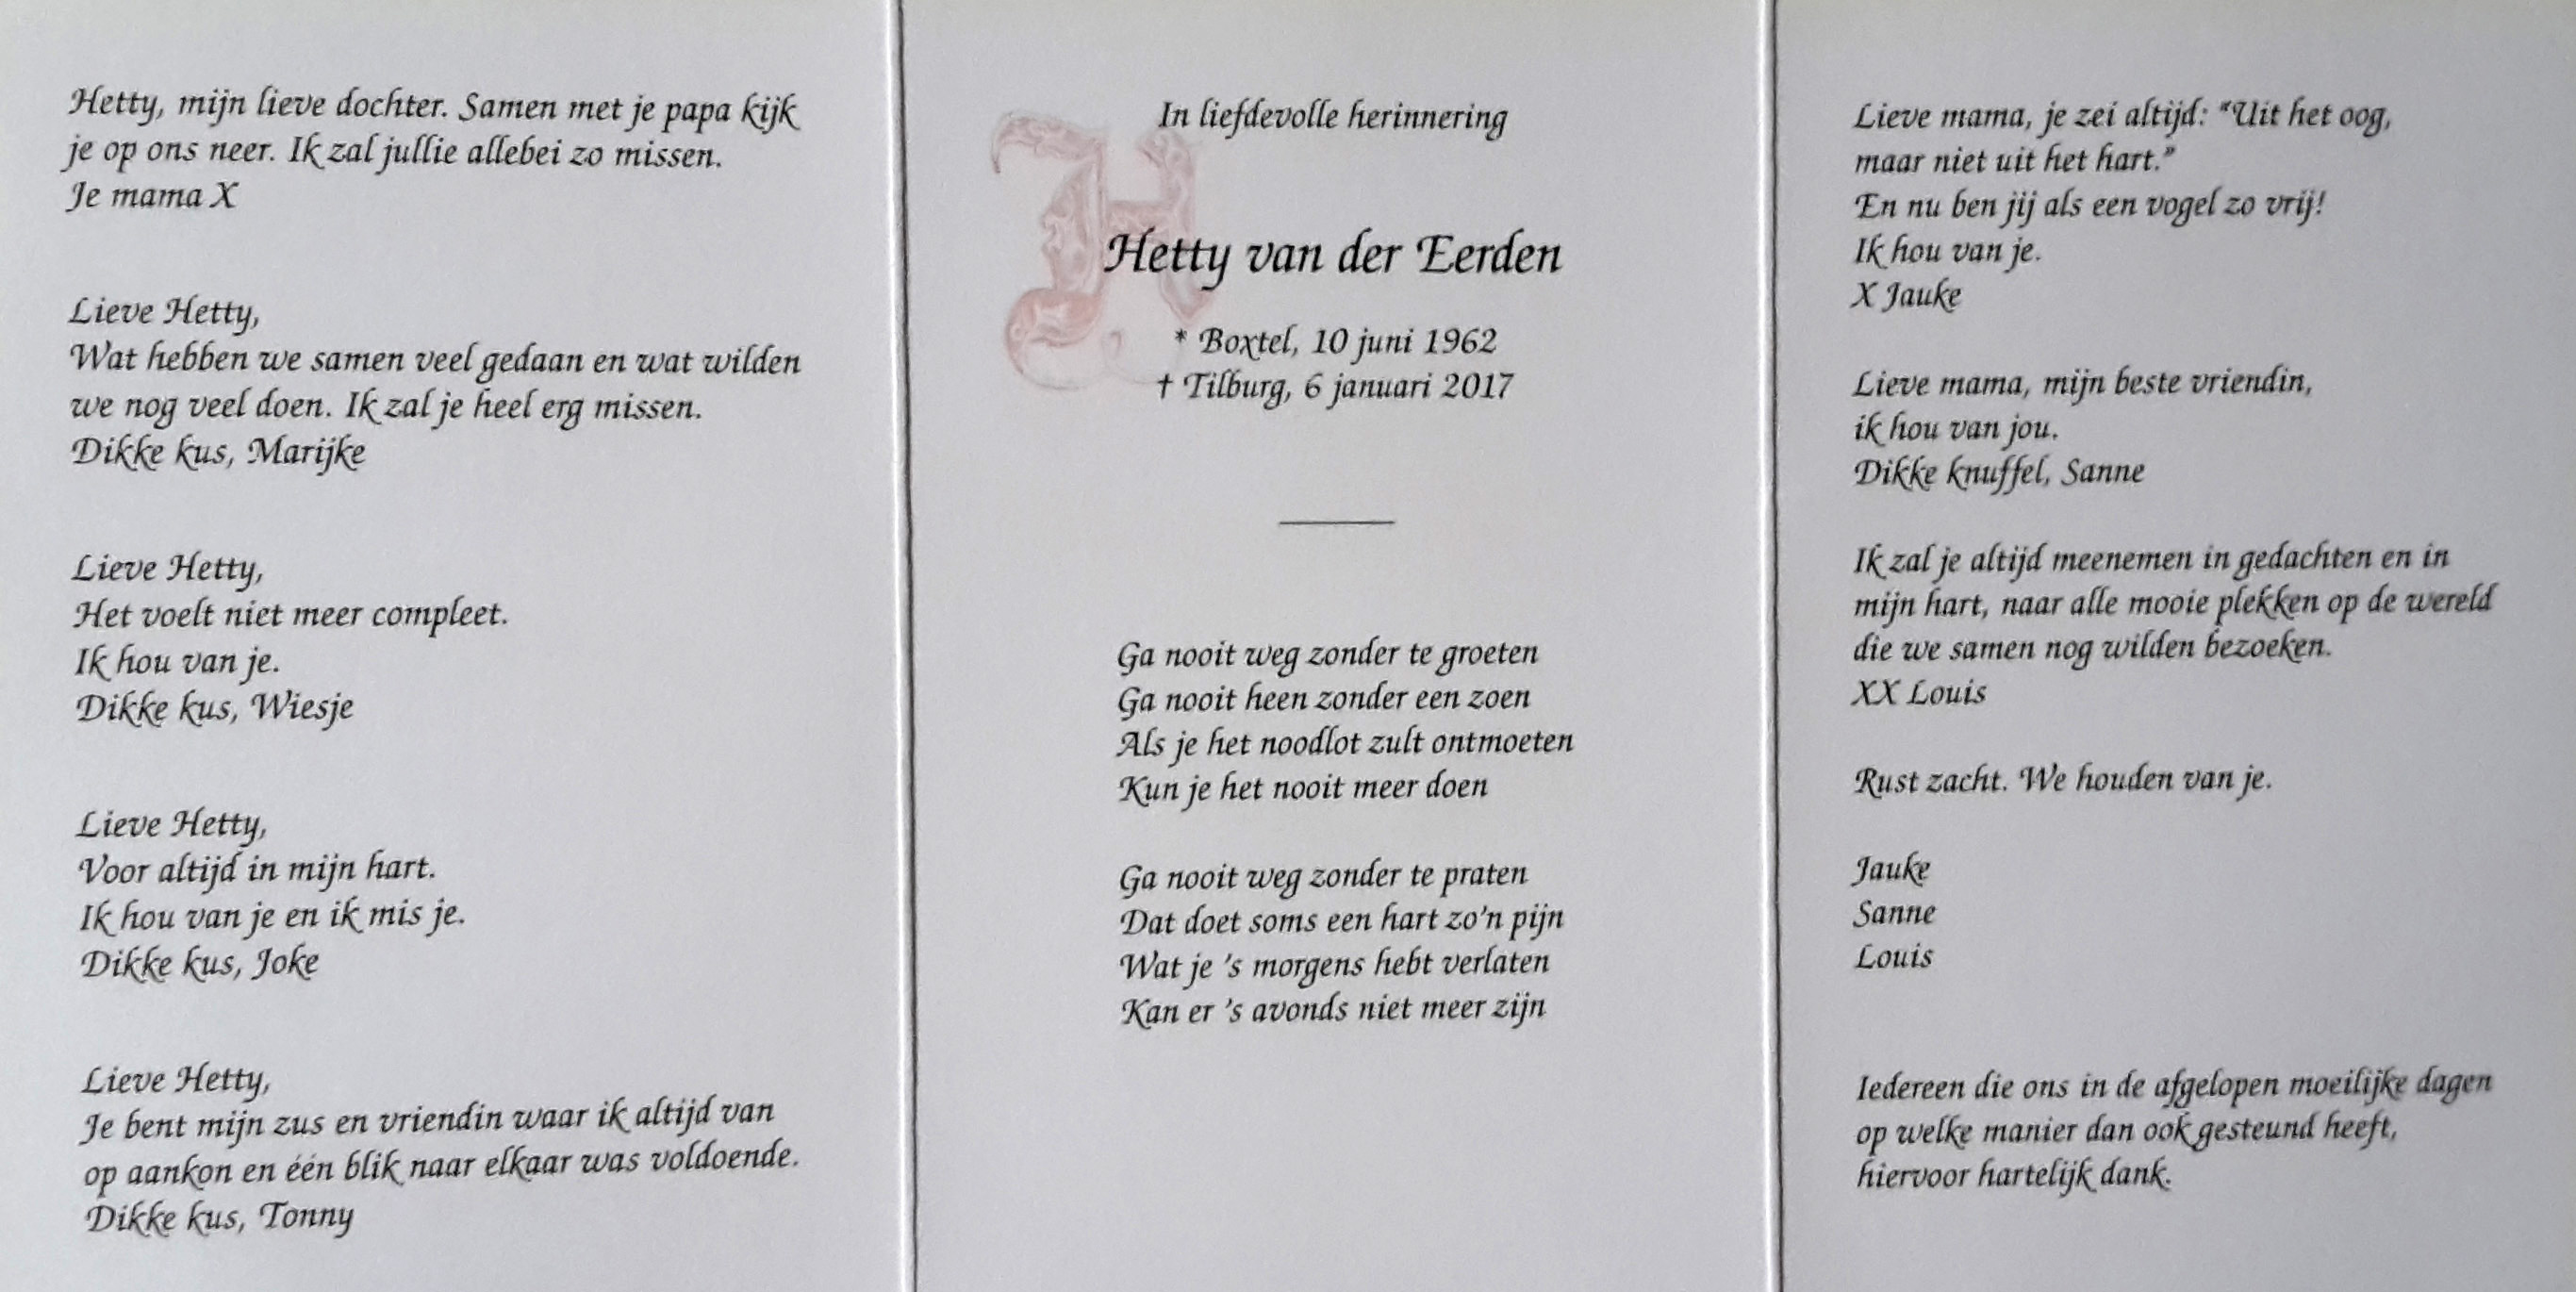 Hetty, mijn lieve dochter. Samen met je papa kijk
je op ons neer. Ik zal jullie allebei zo missen.
Je mama X
Lieve Hetty,
Wat hebben we samen veel gedaan en wat wilden
we nog veel doen. Ik zal je heel erg missen.
Dikke kus, Marijke
Lieve Hetty,
Het voelt niet meer compleet.
Ik hou van je.
Dikke kus, Wiesje
Lieve Hetty,
Voor altijd in mijn hart.
Ik hou van je en ik mis je.
Dikke kus, Joke
Lieve Hetty,
Je bent mijn zus en vriendin waar ik altijd van
op aankon en één blik naar elkaar was voldoende.
Dikke kus, Tonny
In liefdevolle herinnering
H
Hetty van der Eerden
* Boxtel, 10 juni 1962
† Tilburg, 6 januari 2017
Ga nooit weg zonder te groeten
Ga nooit heen zonder een zoen
Als je het noodlot zult ontmoeten
Kun je het nooit meer doen
Ga nooit weg zonder te praten
Dat doet soms een hart zo'n pijn
Wat je 's morgens hebt verlaten
Kan er 's avonds niet meer zijn
Lieve mama, je zei altijd: "Uit het oog,
maar niet uit het hart."
En nu ben jij als een vogel zo vrij!
Ik hou van je.
X Jauke
Lieve mama, mijn beste vriendin,
ik hou van jou.
Dikke knuffel, Sanne
Ik zal je altijd meenemen in gedachten en in
mijn hart, naar alle mooie plekken op de wereld
die we samen nog wilden bezoeken.
XX Louis
Rust zacht. We houden van je.
Jauke
Sanne
Louis
Iedereen die ons in de afgelopen moeilijke dagen
op welke manier dan ook gesteund heeft,
hiervoor hartelijk dank.